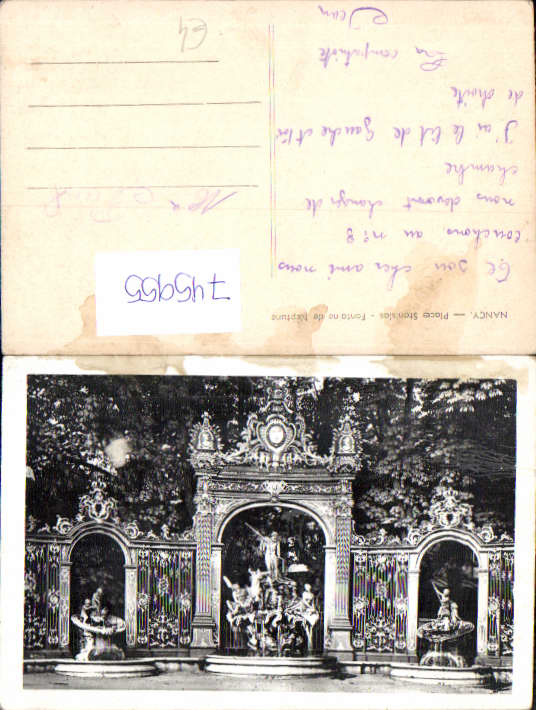 NANCY. — Place Stanislas - Fontaine de Neptune
Ce soir cher ami nous
couchons au nº 8
nous devons changer de
chambre
J'ai le lit de gauche et toi
de droite
La compatriote
Jean
64
745955